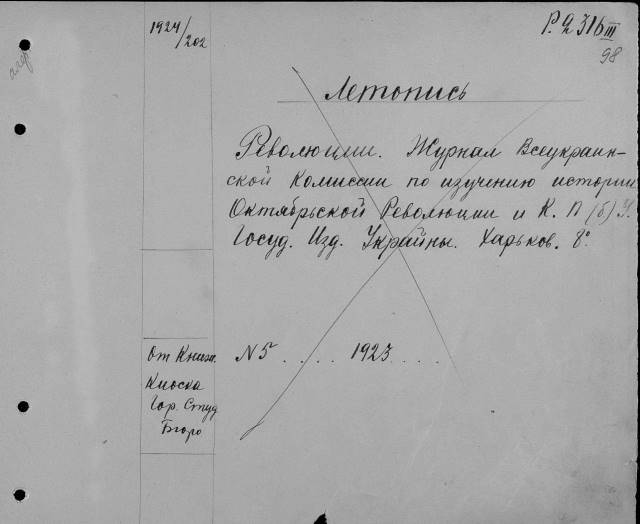 1924/202
P. 9 31b III
98
Летопись
Революции. Журнал Всеукраин-
ской Комиссии по изучению истории
Октябрьской Революции и К. П (б) У.
Госуд. Изд. Украйны. Харьков. 8°
От Книж. № 5 . . . . 1923 . . . .
Киоска
Гор. Студ
Бюро